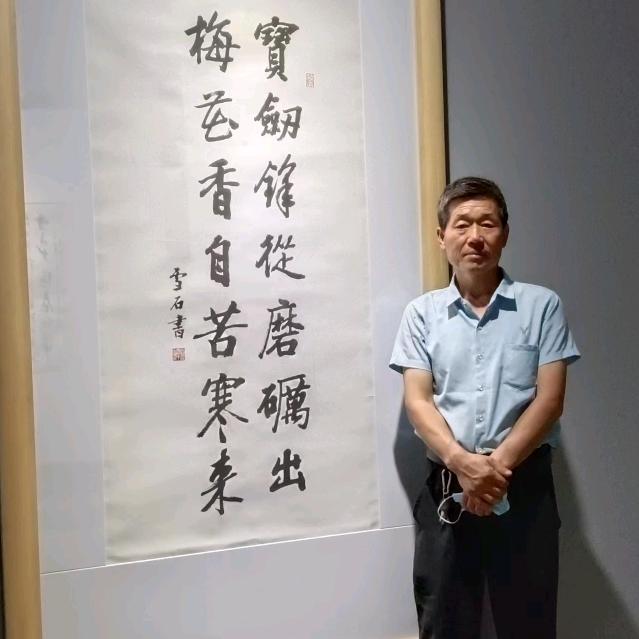 寶劒鋒從磨礪出
梅花香自苦寒来
雪石書